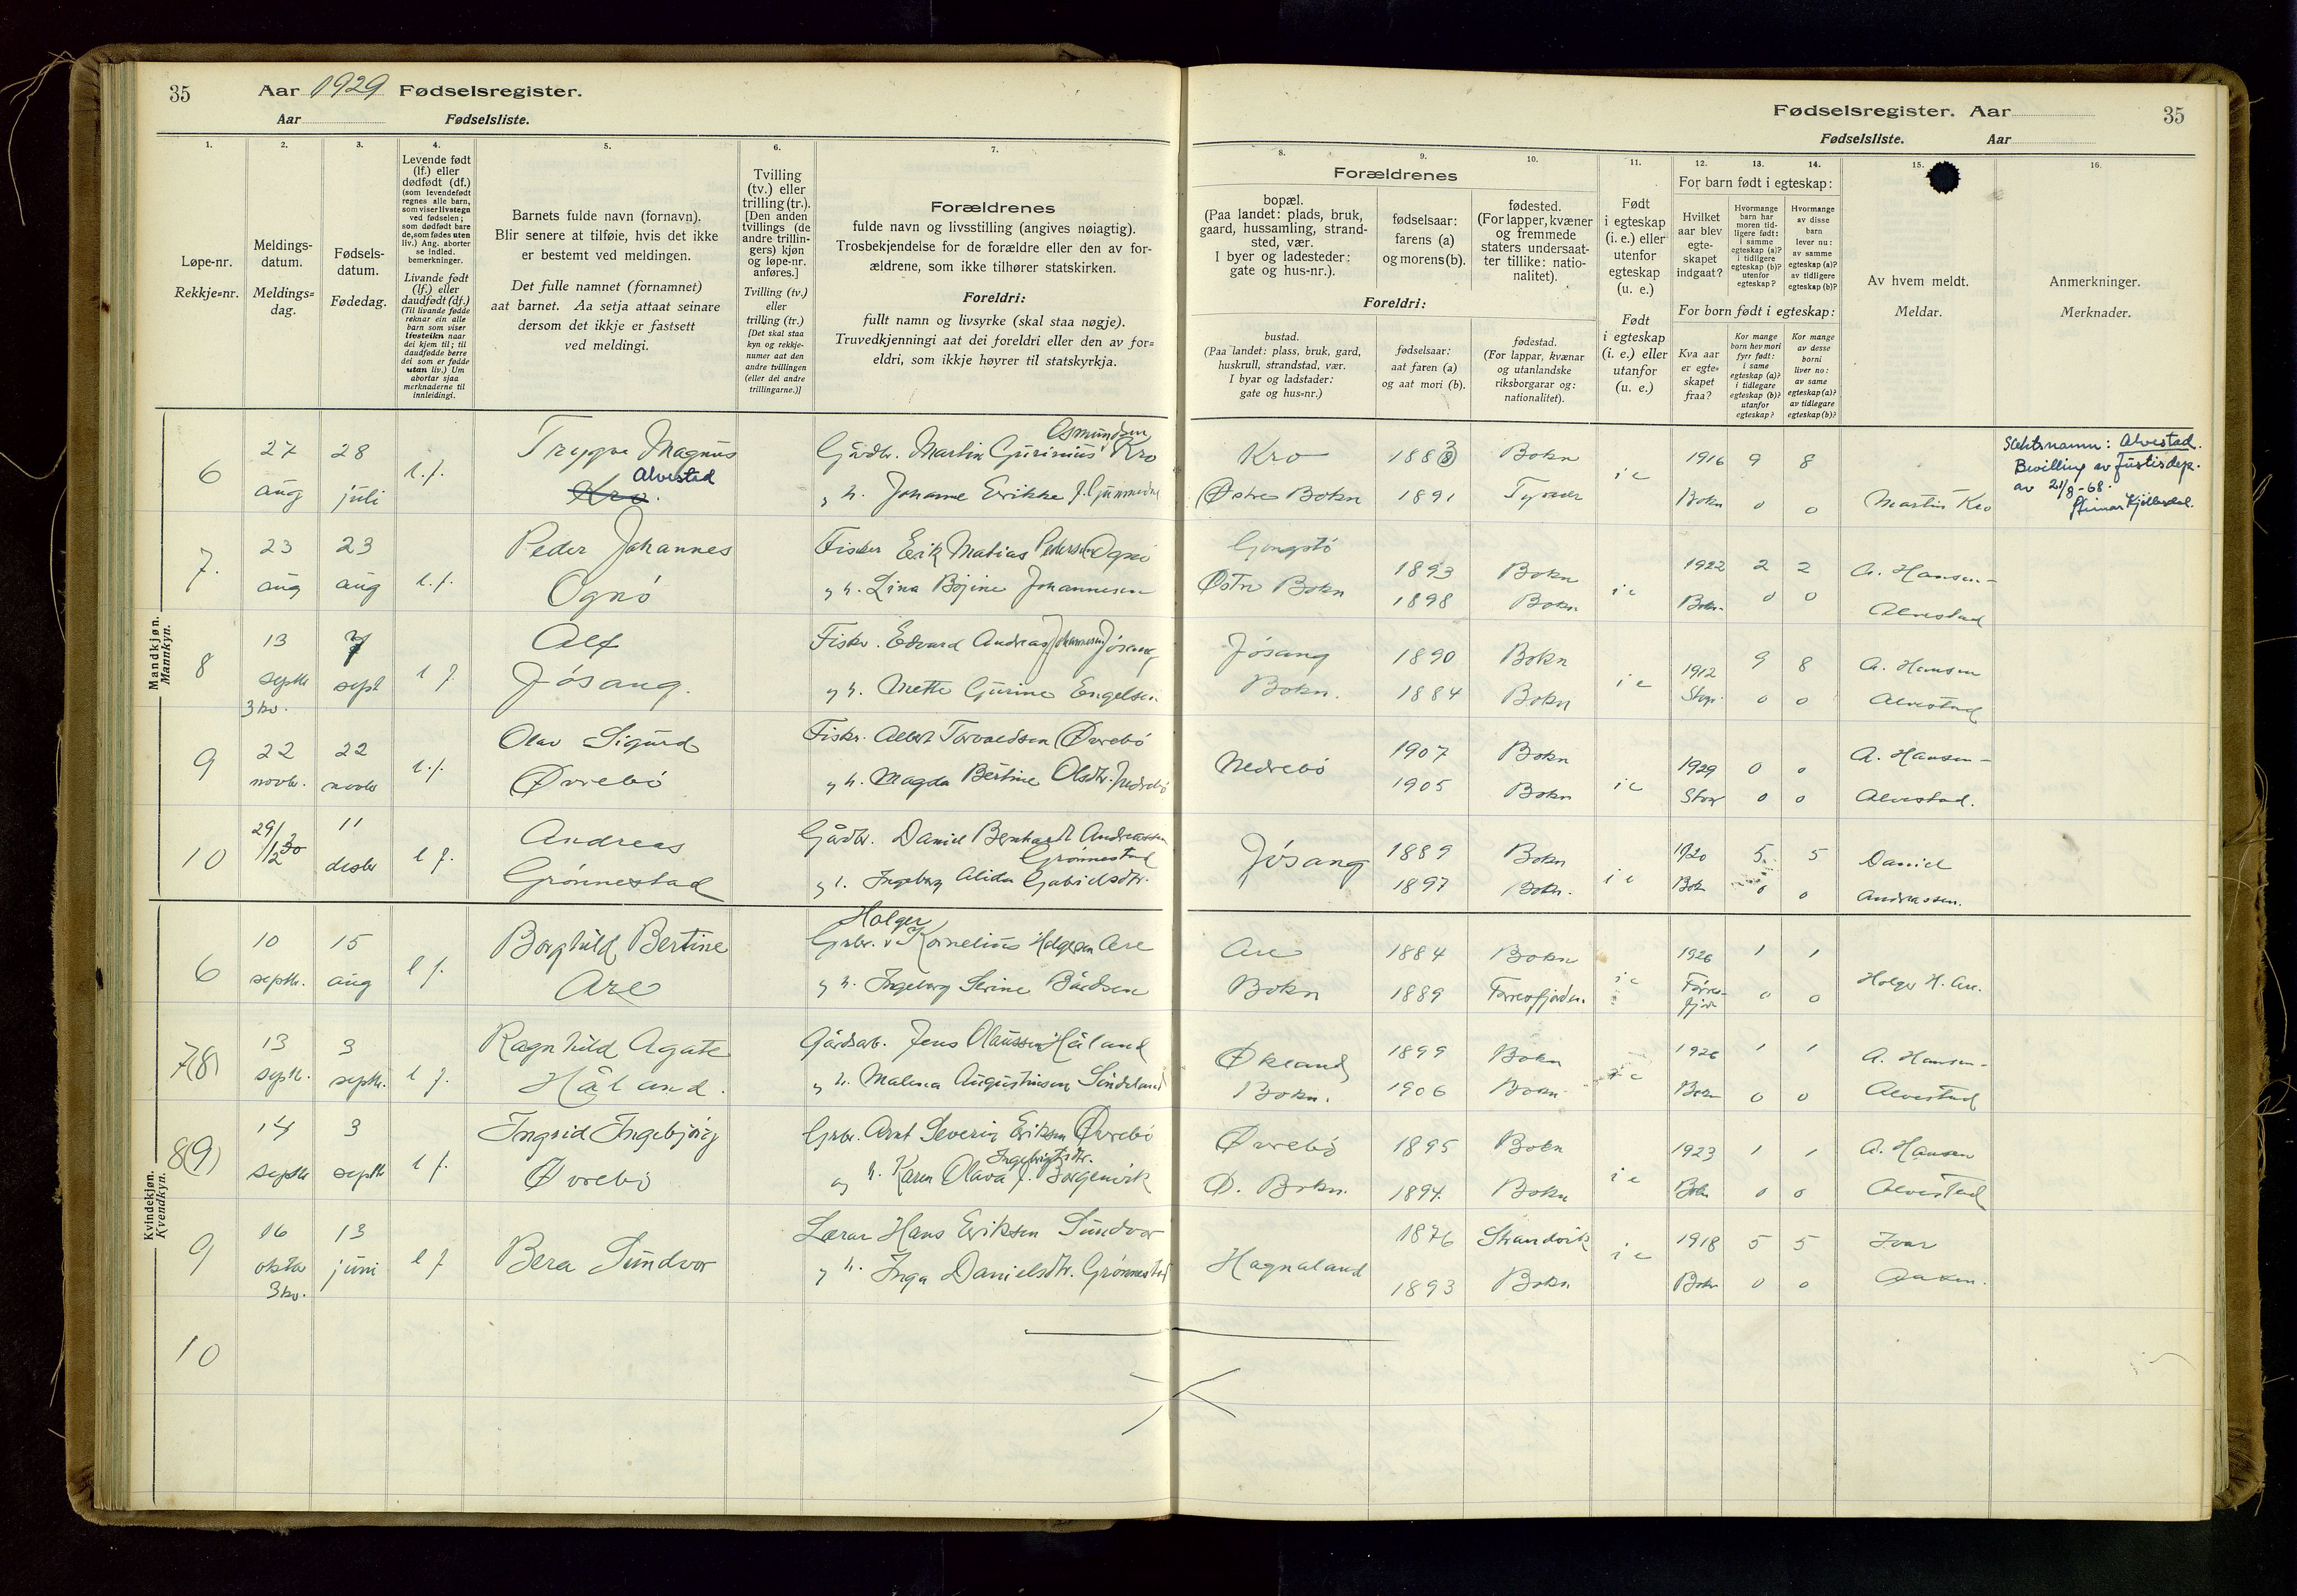 35 Aar 1929 Fødselsregister.
Aar Fødselsliste.
1.
2.
3.
4.
5.
6.
7.
Løpe-nr.
Rekkje=nr.
Meldings-
datum.
Meldings=
dag.
Fødsels-
datum.
Fødedag.
Levende født
(lf.) eller
dødfødt (df.)
(som levendefødt
regnes alle barn,
som viser livstegn
ved fødselen;
som dødfødt bare
de, som fødes uten
liv.) Ang. aborter
se indled.
bemerkninger.
Livande født
(lf.) eller
daudfødt (df.)
(Til livande fødde
reknar ein alle
barn som viser
livsteikn naar
dei kjem til; til
daudfødde berre
dei som er fødde
utan liv.) Um
abortar sjaa
merknaderne til
innleidingi.
Barnets fulde navn (fornavn).
Blir senere at tilføie, hvis det ikke
er bestemt ved meldingen.
Det fulle namnet (fornamnet)
aat barnet. Aa setja attaat seinare
dersom det ikkje er fastsett
ved meldingi.
Tvilling
(tv.) eller
trilling (tr.).
[Den anden
tvillings (de
andre trillin-
gers) kjøn
og løpe-nr.
anføres.]
Tvilling (tv.)
eller
trilling (tr.)
[Det skal staa
kyn og rekkje-
numer aat den
andre tvillingen
(eller dei andre
trillingarne.)]
Forældrenes
fulde navn og livsstilling (angives nøiagtig).
Trosbekjendelse for de forældre eller den av for-
ældrene, som ikke tilhører statskirken.
Foreldri:
fullt namn og livsyrke (skal staa nøgje).
Truvedkjenningi aat dei foreldri eller den av for=
eldri, som ikkje høyrer til statskyrkja.
Mandkjøn.
Mannkyn.
6 27 aug 28 juli l.f. Trygve Magnus
Kro. Alvestad
Gårdbr. Martin Gurinius Osmundsen Kro
h. Johanne Erikke
7. 23 aug 23 aug l.f. Peder Johannes
Ognø
Fisker Erik Matias Pedersen Ognø
h. Lina Bojine Johannesen
8 13 septbr 3 kv. 7 sept l f. Alf
Jøsang.
Fiskr. Edvard Andreas Johannesen Jøsang
h. Mette Gurine Engelsen
9 22 novbr. 22 novbr l.f. Olav Sigurd
Øvrebø
Fiskr. Albert Torvaldsen Øvrebø
h. Magda Bertine Olsdtr. Nedrebø
10 29/12 30 11 desbr l f. Andreas
Grønnestad
Gårdbr. Daniel Bernhardt Andreassen
Grønnestad
h. Ingeborg Alida Gabrielsdtr.
Kvindekjøn.
Kvendkyn.
6 10 septbr. 15 aug l f. Borghild Bertine
Are
Holger
Grbr. Kornelius Holgersen Are
h. Ingeborg Serine Bårdsen
7(8) 13 septbr. 3 septbr. l f. Ragnhild Agate
Håland.
Gårdsarb. Jens Olaussen Håland
h. Malena Augustinsen Sindeland
8(9) 14 septbr 3 septbr l f. Ingrid Ingebjørg
Øvrebø
Grbr. Arnt Severin Eriksen Øvrebø
Ingebrigtsdtr.
og h. Karen Olava f. Borgenvik
9 16 oktbr 3 kv. 13 juni l f Bera Sundvor
Lærar Hans Eriksen Sundvor
h. Inga Danielsdtr. Grønnestad
10
Fødselsregister. Aar 35
Fødselsliste. Aar
8.
9.
10.
11.
12.
13.
14.
15.
16.
Forældrenes
bopæl.
(Paa landet: plads, bruk,
gaard, hussamling, strand-
sted, vær.
I byer og ladesteder:
gate og hus-nr.).
fødselsaar:
farens (a)
og morens (b).
fødested.
(For lapper, kvæner
og fremmede
staters undersaat-
ter tillike: natio-
nalitet).
Foreldri:
bustad.
(Paa landet: plass, bruk, gard,
huskrull, strandstad, vær.
I byar og ladstader:
gate og hus=nr.)
fødselsaar:
aat faren (a)
og aat mori (b).
fødestad.
(For lappar, kvænar
og utanlandske
riksborgarar og:
nationalitet).
Født
i egteskap
(i. e.) eller
utenfor
egteskap
(u. e.)
Født
i egteskap
(i. e.) eller
utanfor
(u. e.)
For barn født i egteskap:
Hvilket
aar blev
egte-
skapet
indgaat?
Hvormange
barn har
moren tid-
ligere født:
i samme
egteskap (a)?
i tidligere
egteskap (b)?
utenfor
egteskap?
Hvormange
av disse
barn
lever nu:
av samme
egteskap (a)?
av tidligere
egteskap (b)?
For born født i egteskap:
Kva aar
er egte-
skapet
fraa?
Kor mange
born hev mori
fyrr født:
i same
egteskap (a)?
i tidlegare
egteskap (b)?
utanfor
egteskap?
Kor mange
av desse
borni
liver no:
av same
egteskap (a)?
av tidlegare
egteskap (b)?
Av hvem meldt.
Meldar.
Anmerkninger.
Merknader.
Kro 1883 Bokn i e 1916 9 8
Østre Bokn 1891 Tysvær Bokn 0 0 Martin Kro
Slektsnamn: Alvestad.
Bevilling av Justisdep.
av 21/8-68.
Gongstø
Østre Bokn 1893 Bokn i e 1922 2 2 A. Hansen-
1898 Bokn Bokn 0 0 Alvestad
Jøsang 1890 Bokn i e 1912 9 8 A. Hansen
Bokn. 1884 Bokn 0 0 Alvestad
Nedrebø 1907 Bokn i e 1929 0 0 A. Hansen-
1905 Bokn 0 0 Alvestad.
Jøsang 1889 Bokn i e 1920 5 5 Daniel
1897 Bokn. Bokn 0 0 Andreassen.
Are 1884 Bokn i e 1926 1 1
Bokn 1889 Førresfjorden. Førres-
fjord 0 0 Holger H. Are.
Økland 1899 Bokn i e 1926 1 1 A. Hansen-
Bokn. 1906 Bokn Bokn 0 0 Alvestad
Øvrebø 1895 Bokn i e 1923 1 1 A. Hansen
Ø. Bokn. 1894. Bokn Bokn 0 0 Alvestad
Hagnaland 1876 Strandvik i e 1918 5 5 Ivar
1893 Bokn Bokn 0 0